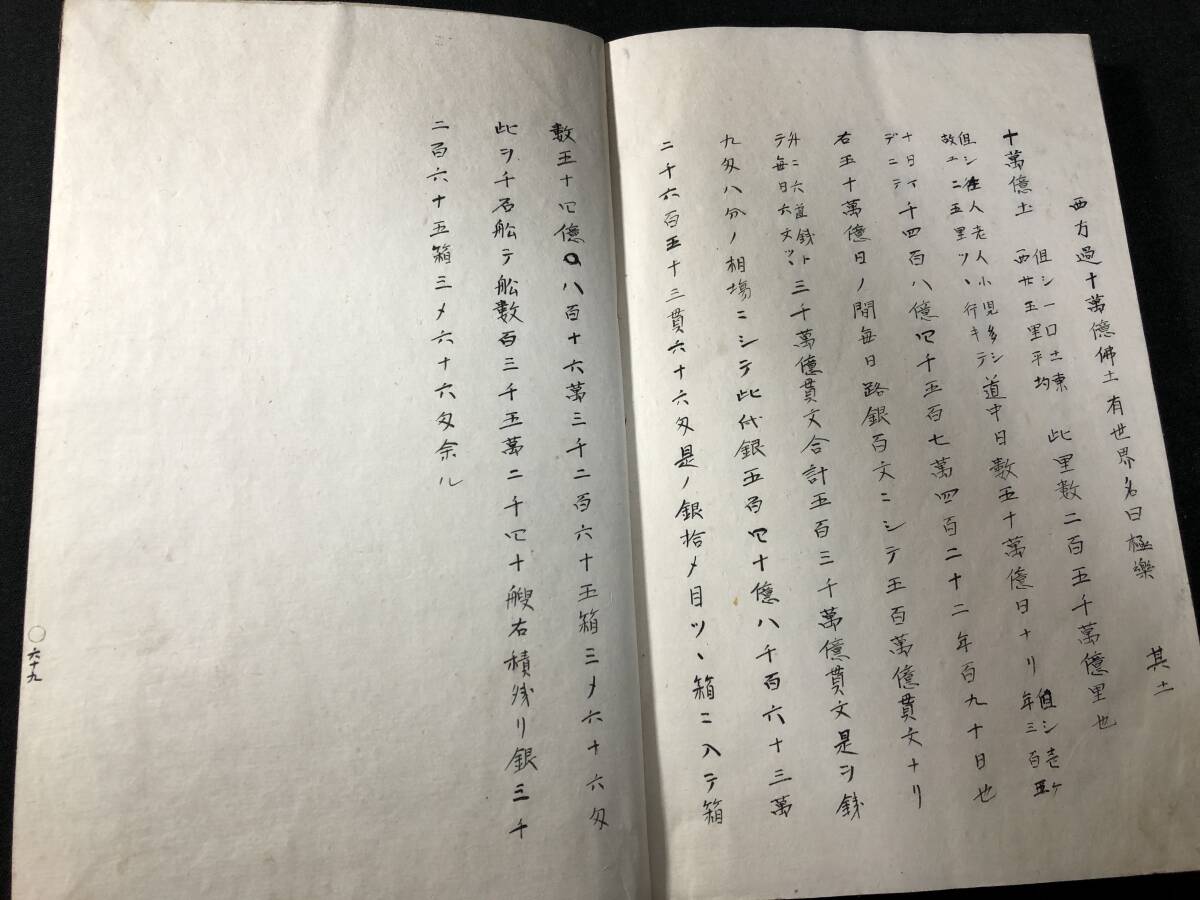 西方過十萬億佛土有世界名曰極樂 其土
十萬億土 但シ一口土東西廿五里平均 此里数二百五千萬億里也
但シ往人老人小児多シ故ニ二五里ツヽ行キテ 道中日数五十萬億日ナリ 但シ壱ヶ年三百五
十日イ千四百八億四千五百七萬四百二十二年百九十日也
デニテ
右五十萬億日ノ間毎日路銀百文ニシテ五百萬億貫文ナリ
外ニ六道銭トテ毎日六文ツヽ 三千萬億貫文合計五百三千萬億貫文是ヲ銭
九匁八分ノ相場ニシテ此代銀五百四十億八千百六十三萬
二千六百五十三貫六十六匁是ノ銀拾〆目ツヽ箱ニ入テ箱
数五十四億〇八百十六萬三千二百六十五箱三〆六十六匁
此ヲ千石舩テ舩数百三千五萬二千四十艘右積残リ銀三千
二百六十五箱三〆六十六匁余ル
〇六十九